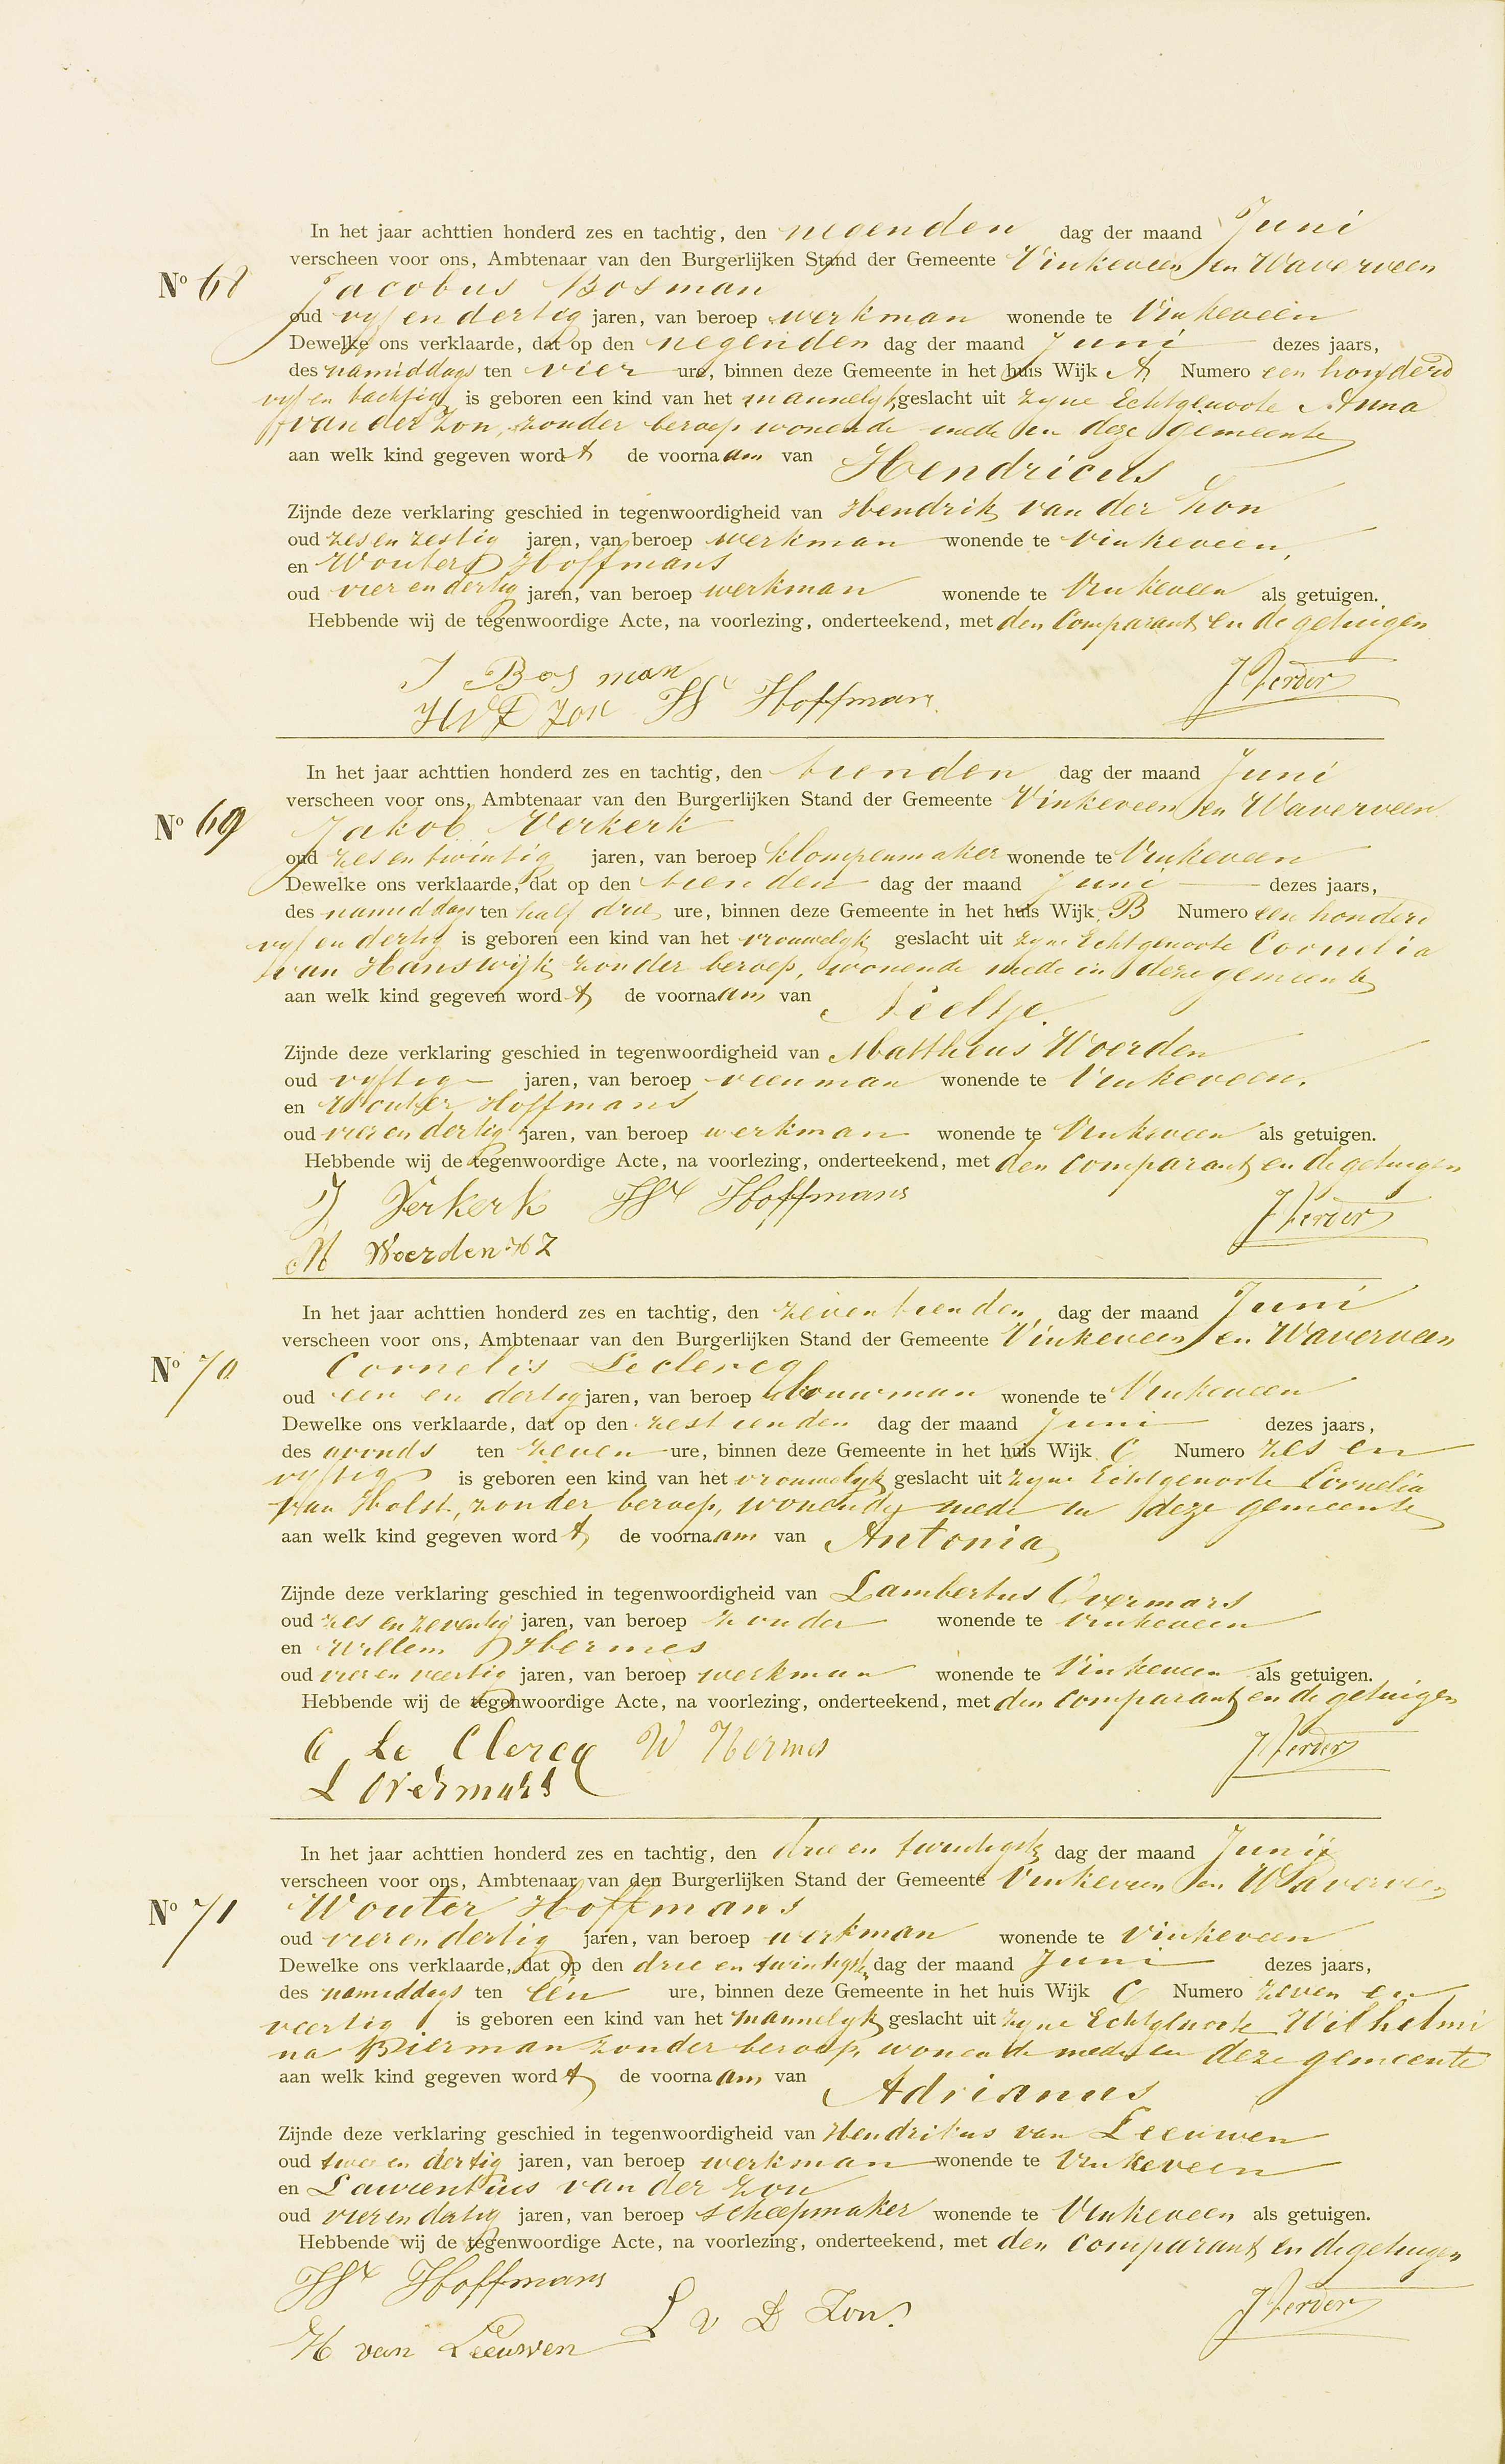 In het jaar achttien honderd zes en tachtig, den negenden dag der maand Juni
verscheen voor ons, Ambtenaar van den Burgerlijken Stand der Gemeente Vinkeveen en Waverveen
No 68 Jacobus Bosman
oud vyf en dertig jaren, van beroep werkman wonende te Vinkeveen
Dewelke ons verklaarde, dat op den negenden dag der maand Juni dezes jaars,
des namiddags ten vier ure, binnen deze Gemeente in het huis Wijk A Numero een honderd
vyf en tachtig is geboren een kind van het mannelyk geslacht uit zyne Echtgenoote Anna
van der Zon, zonder beroep wonende mede in deze gemeente
aan welk kind gegeven wordt de voornaam van Hendricus
Zijnde deze verklaring geschied in tegenwoordigheid van Hendrik van der Zon
oud zes en zestig jaren, van beroep werkman wonende te Vinkeveen,
en Wouter Hoffmans
oud vier en dertig jaren, van beroep werkman wonende te Vinkeveen als getuigen.
Hebbende wij de tegenwoordige Acte, na voorlezing, onderteekend, met den Comparant en de getuigen
J Bosman
HVD Zon W Hoffmans JVerdor
In het jaar achttien honderd zes en tachtig, den tienden dag der maand Juni
verscheen voor ons, Ambtenaar van den Burgerlijken Stand der Gemeente Vinkeveen en Waverveen
No 69 Jakob Verkerk
oud zes en twintig jaren, van beroep klompenmaker wonende te Vinkeveen
Dewelke ons verklaarde, dat op den tienden dag der maand Juni dezes jaars,
des namiddags ten half drie ure, binnen deze Gemeente in het huis Wijk B Numero een honderd
vyf en dertig is geboren een kind van het vrouwelyk geslacht uit zyne Echtgenoote Cornelia
van Hanswijk zonder beroep, wonende mede in deze gemeente
aan welk kind gegeven wordt de voornaam van Neeltje.
Zijnde deze verklaring geschied in tegenwoordigheid van Mattheus Woerden
oud vyftig jaren, van beroep veenman wonende te Vinkeveen.
en Wouter Hoffmans
oud vier en dertig jaren, van beroep werkman wonende te Vinkeveen als getuigen.
Hebbende wij de tegenwoordige Acte, na voorlezing, onderteekend, met den Comparant en de getuigen
J Verkerk W Hoffmans JVerdor
M Woerden HZ
In het jaar achttien honderd zes en tachtig, den zeventienden, dag der maand Juni
verscheen voor ons, Ambtenaar van den Burgerlijken Stand der Gemeente Vinkeveen en Waverveen
No 70 Cornelis Leclercq
oud een en dertig jaren, van beroep bouwman wonende te Vinkeveen
Dewelke ons verklaarde, dat op den zestienden dag der maand Juni dezes jaars,
des avonds ten zeven ure, binnen deze Gemeente in het huis Wijk C Numero zes en
vyftig is geboren een kind van het vrouwelyk geslacht uit zyne Echtgenoote Cornelia
van Holst, zonder beroep, wonende mede in deze gemeente
aan welk kind gegeven wordt de voornaam van Antonia
Zijnde deze verklaring geschied in tegenwoordigheid van Lambertus Overmars
oud zes en zeventig jaren, van beroep zonder wonende te Vinkeveen
en Willem Hermes
oud vier en veertig jaren, van beroep werkman wonende te Vinkeveen als getuigen.
Hebbende wij de tegenwoordige Acte, na voorlezing, onderteekend, met den Comparant en de getuigen
C Le Clercq W Hermes JVerdor
L Overmars
In het jaar achttien honderd zes en tachtig, den drie en twintigste dag der maand Junij
verscheen voor ons, Ambtenaar van den Burgerlijken Stand der Gemeente Vinkeveen en Waverveen
No 71 Wouter Hoffmans
oud vier en dertig jaren, van beroep werkman wonende te Vinkeveen
Dewelke ons verklaarde, dat op den drie en twintigste dag der maand Juni dezes jaars,
des namiddags ten één ure, binnen deze Gemeente in het huis Wijk C Numero zeven en
veertig is geboren een kind van het mannelyk geslacht uit zyne Echtgenoote Wilhelmi
na Bierman zonder beroep, wonende mede in deze gemeente
aan welk kind gegeven wordt de voornaam van Adrianus
Zijnde deze verklaring geschied in tegenwoordigheid van Hendrikus van Leeuwen
oud twee en dertig jaren, van beroep werkman wonende te Vinkeveen
en Laurentius van der Zon
oud vier en dertig jaren, van beroep scheepmaker wonende te Vinkeveen als getuigen.
Hebbende wij de tegenwoordige Acte, na voorlezing, onderteekend, met den Comparant en de getuigen
W Hoffmans
H van Leeuwen L v D Zon. JVerdor